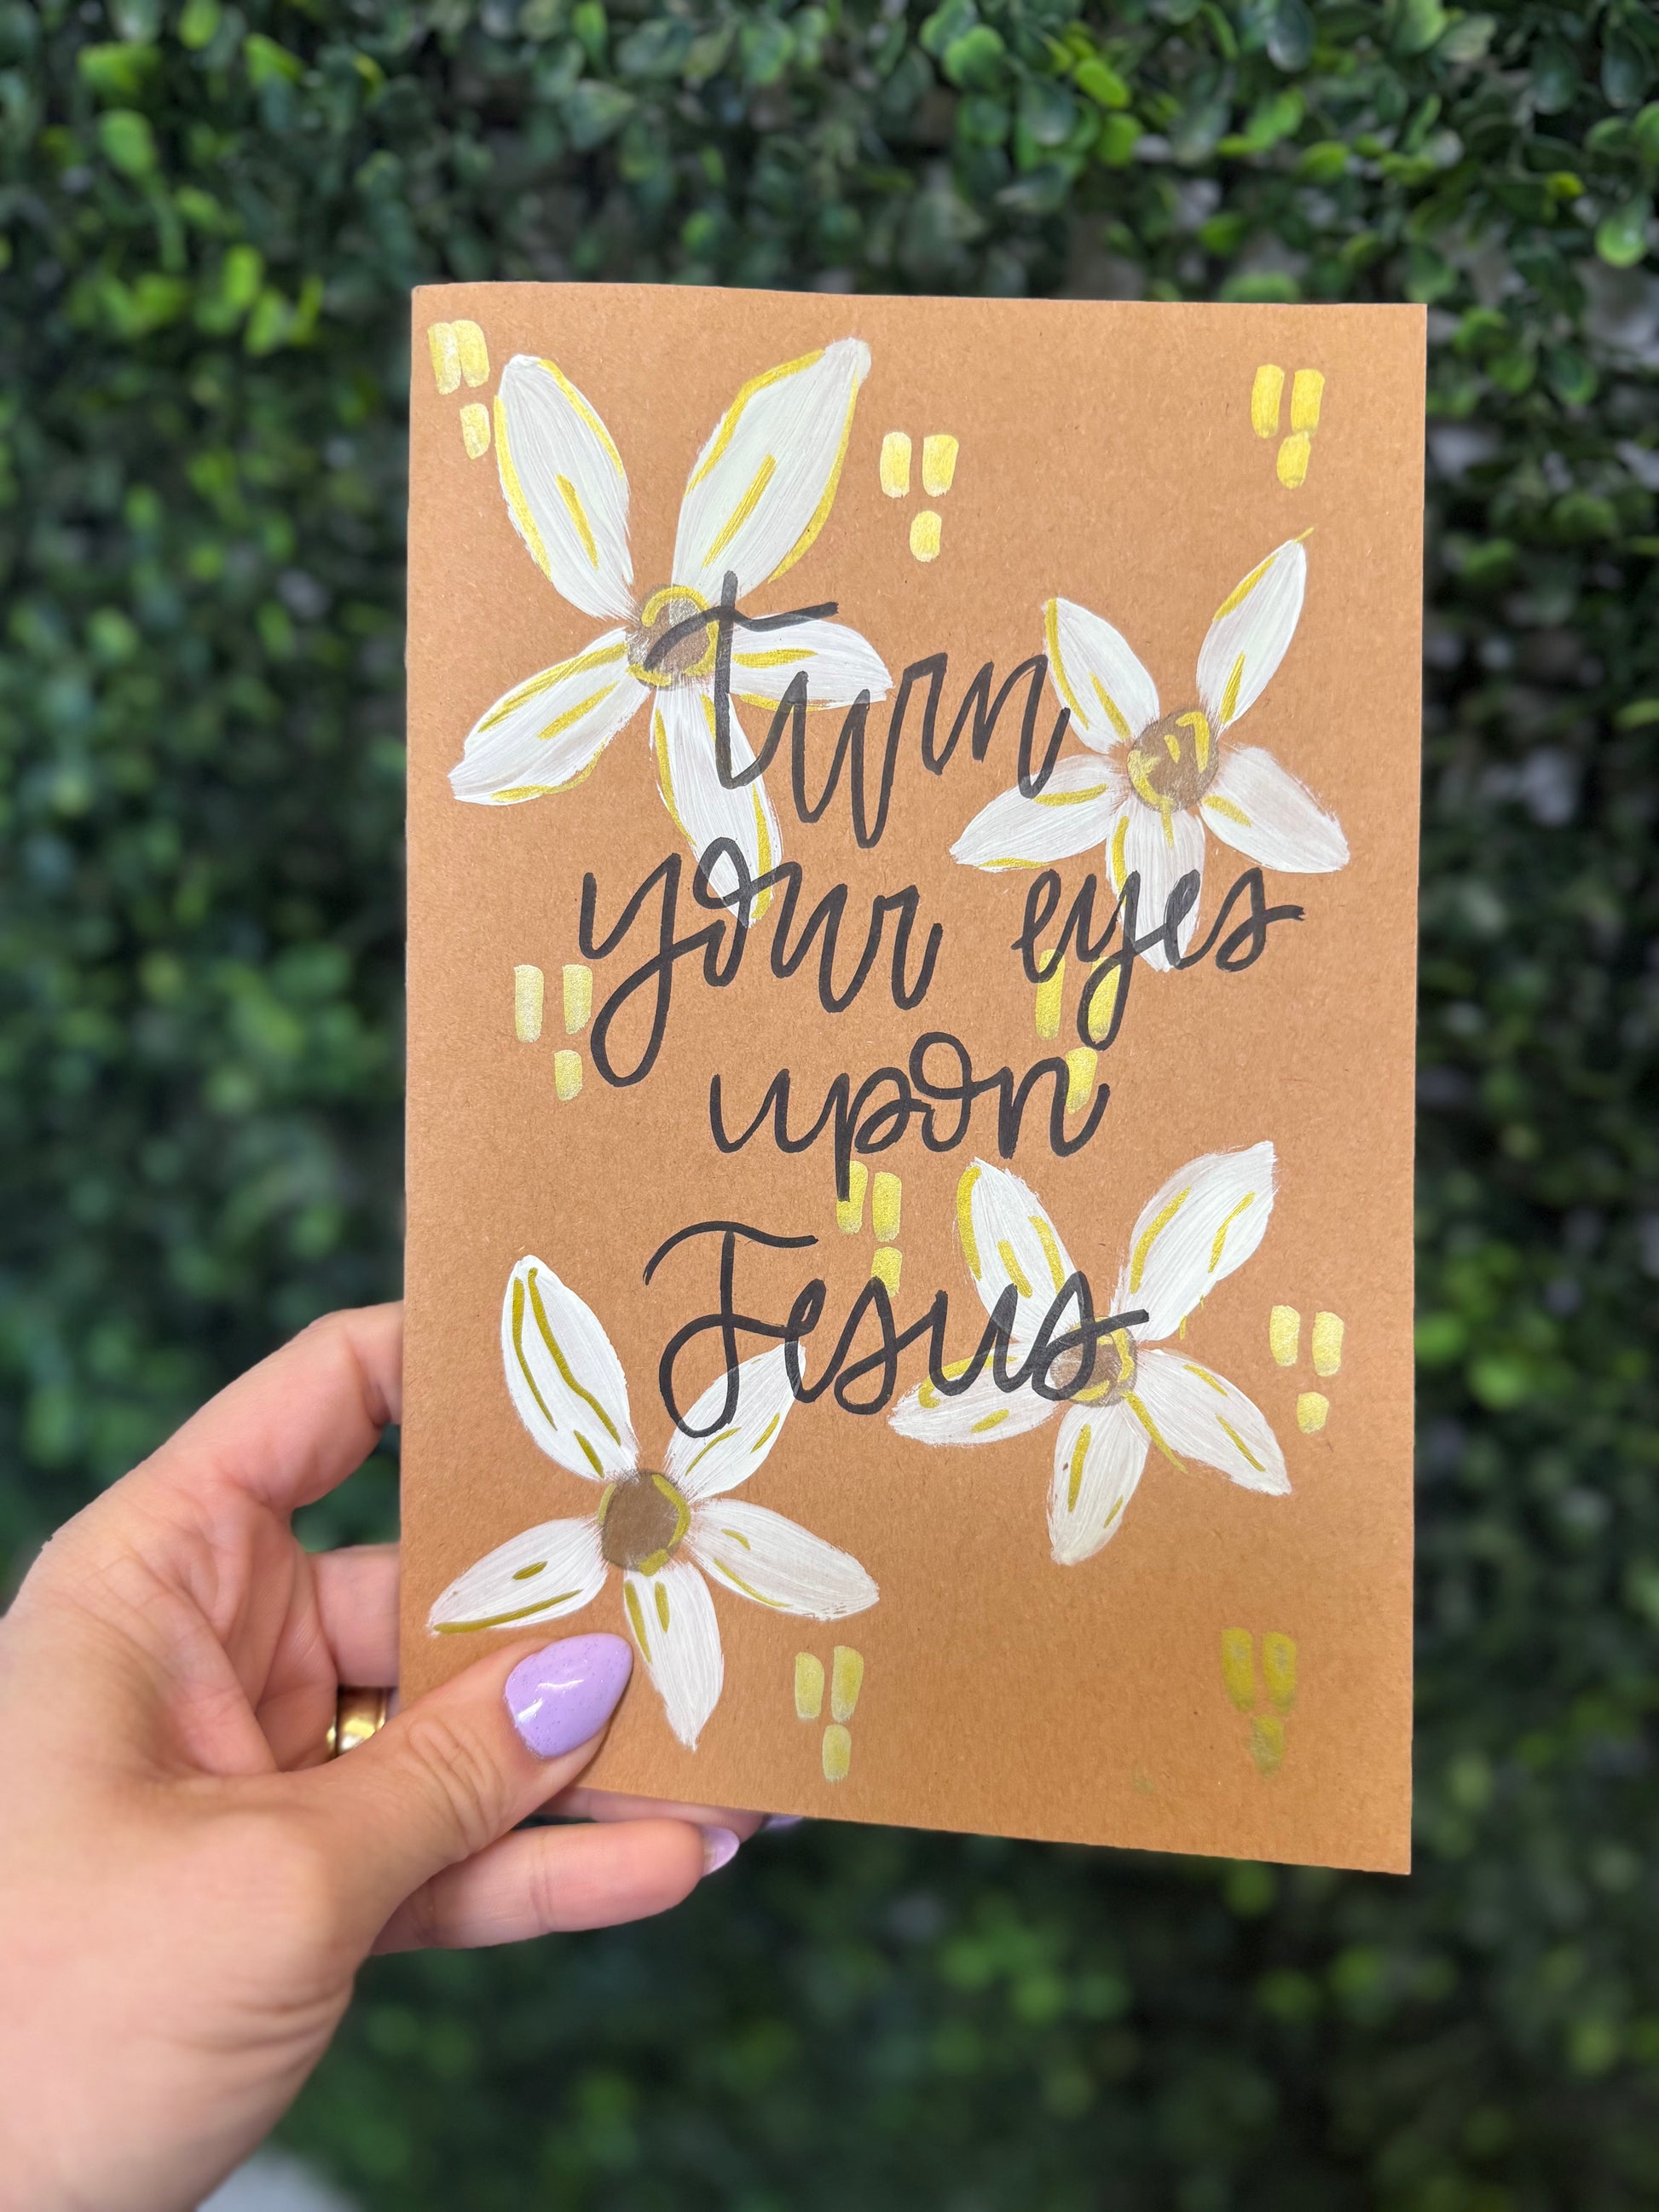 turn
your eyes
upon
Jesus